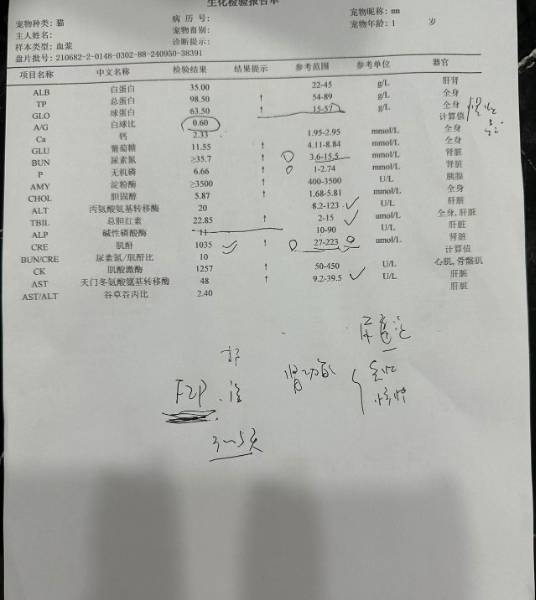 生化检验报告单
宠物种类: 猫 病 历 号: 宠物昵称: nn
主人姓名: 宠物性别: 宠物年龄: 1 岁
样本类型: 血浆 诊断提示:
盘片批号: 210682-2-0148-0302-88-240950-38391
项目名称 中文名称 检验结果 结果提示 参考范围 参考单位 器官
ALB 白蛋白 35.00 22-45 g/L 肝肾
TP 总蛋白 98.50 ↑ 54-89 g/L 全身
GLO 球蛋白 63.50 ↑ 15-57 g/L 全身
A/G 白球比 0.60 计算值
Ca 钙 2.33 1.95-2.95 mmol/L 全身
GLU 葡萄糖 11.55 ↑ 4.11-8.84 mmol/L 全身
BUN 尿素氮 ≥35.7 ↑ 3.6-15.5 mmol/L 肾脏
P 无机磷 6.66 ↑ 1-2.74 mmol/L 肾脏
AMY 淀粉酶 ≥3500 ↑ 400-3500 U/L 胰腺
CHOL 胆固醇 5.87 ↑ 1.68-5.81 mmol/L 全身
ALT 丙氨酸氨基转移酶 20 8.2-123 U/L 肝脏
TBIL 总胆红素 22.85 ↑ 2-15 umol/L 全身, 肝脏
ALP 碱性磷酸酶 11 10-90 U/L 肝脏
CRE 肌酐 1035 ↑ 27-223 umol/L 肾脏
BUN/CRE 尿素氮/肌酐比 10 计算值
CK 肌酸激酶 1257 ↑ 50-450 U/L 心肌, 骨骼肌
AST 天门冬氨酸氨基转移酶 48 ↑ 9.2-39.5 U/L 肝脏
AST/ALT 谷草谷丙比 2.40 肝脏
肾功能
3~5天